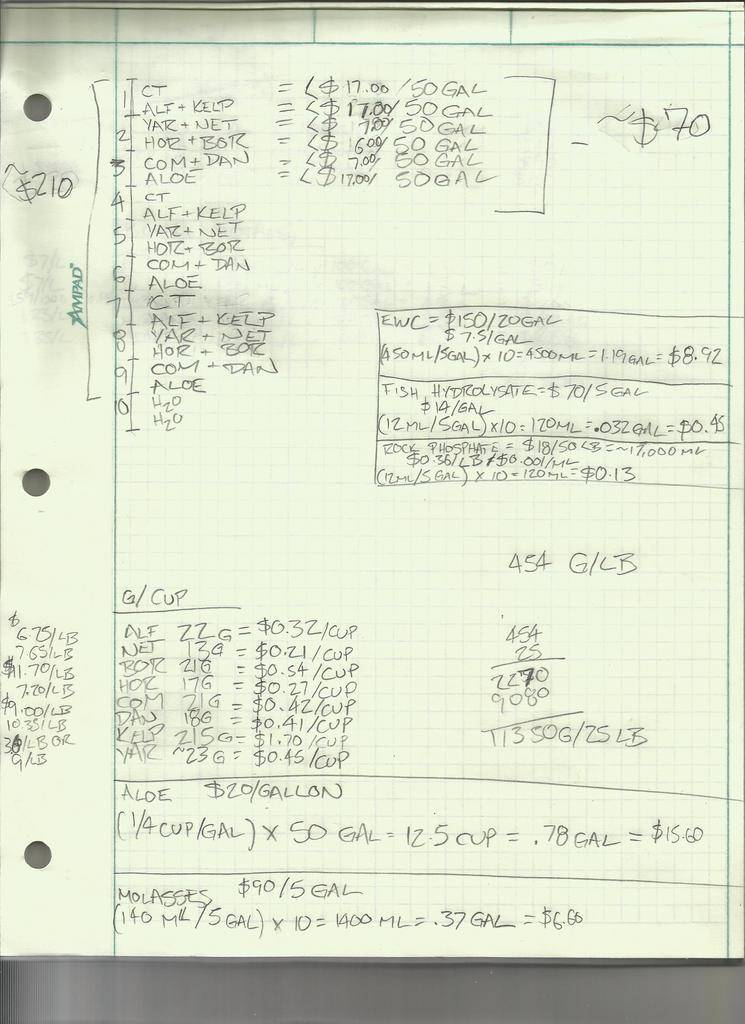 1 CT = <$ 17.00 / 50 GAL
ALF + KELP = <$ 17.00/ 50 GAL
2 YAR + NET = <$ 7.00/ 50 GAL
HOR + BOR = <$ 6.00/ 50 GAL
3 COM + DAN = <$ 7.00/ 50 GAL
ALOE = <$ 17.00/ 50 GAL
- ~$70
~$210
4 CT
ALF + KELP
5 YAR + NET
HOR + BOR
COM + DAN
6 ALOE
7 CT
ALF + KELP
8 YAR + NET
HOR + BOR
9 COM + DAN
ALOE
10 H2O
H2O
AMPAD®
EWC = $150/20GAL
$7.5/GAL
(450ML/5GAL) x 10 = 4500ML = 1.19GAL = $8.92
FISH HYDROLYSATE = $70/5 GAL
$14/GAL
(12ML/5GAL) x 10 = 120ML = .032GAL = $0.45
ROCK PHOSPHATE = $18/50 LB = ~17,000 ML
$0.36/LB $0.001/ML
(12ML/5 GAL) x 10 = 120ML = $0.13
454 G/LB
G/CUP
$
6.75/LB ALF 22G = $0.32/CUP
7.65/LB NET 13G = $0.21/CUP
$11.70/LB BOR 21G = $0.54/CUP
7.20/LB HOR 17G = $0.27/CUP
$9.00/LB COM 21G = $0.42/CUP
10.35/LB DAN 18G = $0.41/CUP
/LB OR KELP 215G = $1.70/CUP
9/LB YAR ~23G = $0.45/CUP
454
25
2270
9080
11350G/25LB
ALOE $20/GALLON
(1/4 CUP/GAL) x 50 GAL = 12.5 CUP = .78 GAL = $15.60
MOLASSES $90/5 GAL
(140 ML/5 GAL) x 10 = 1400 ML = .37 GAL = $6.66